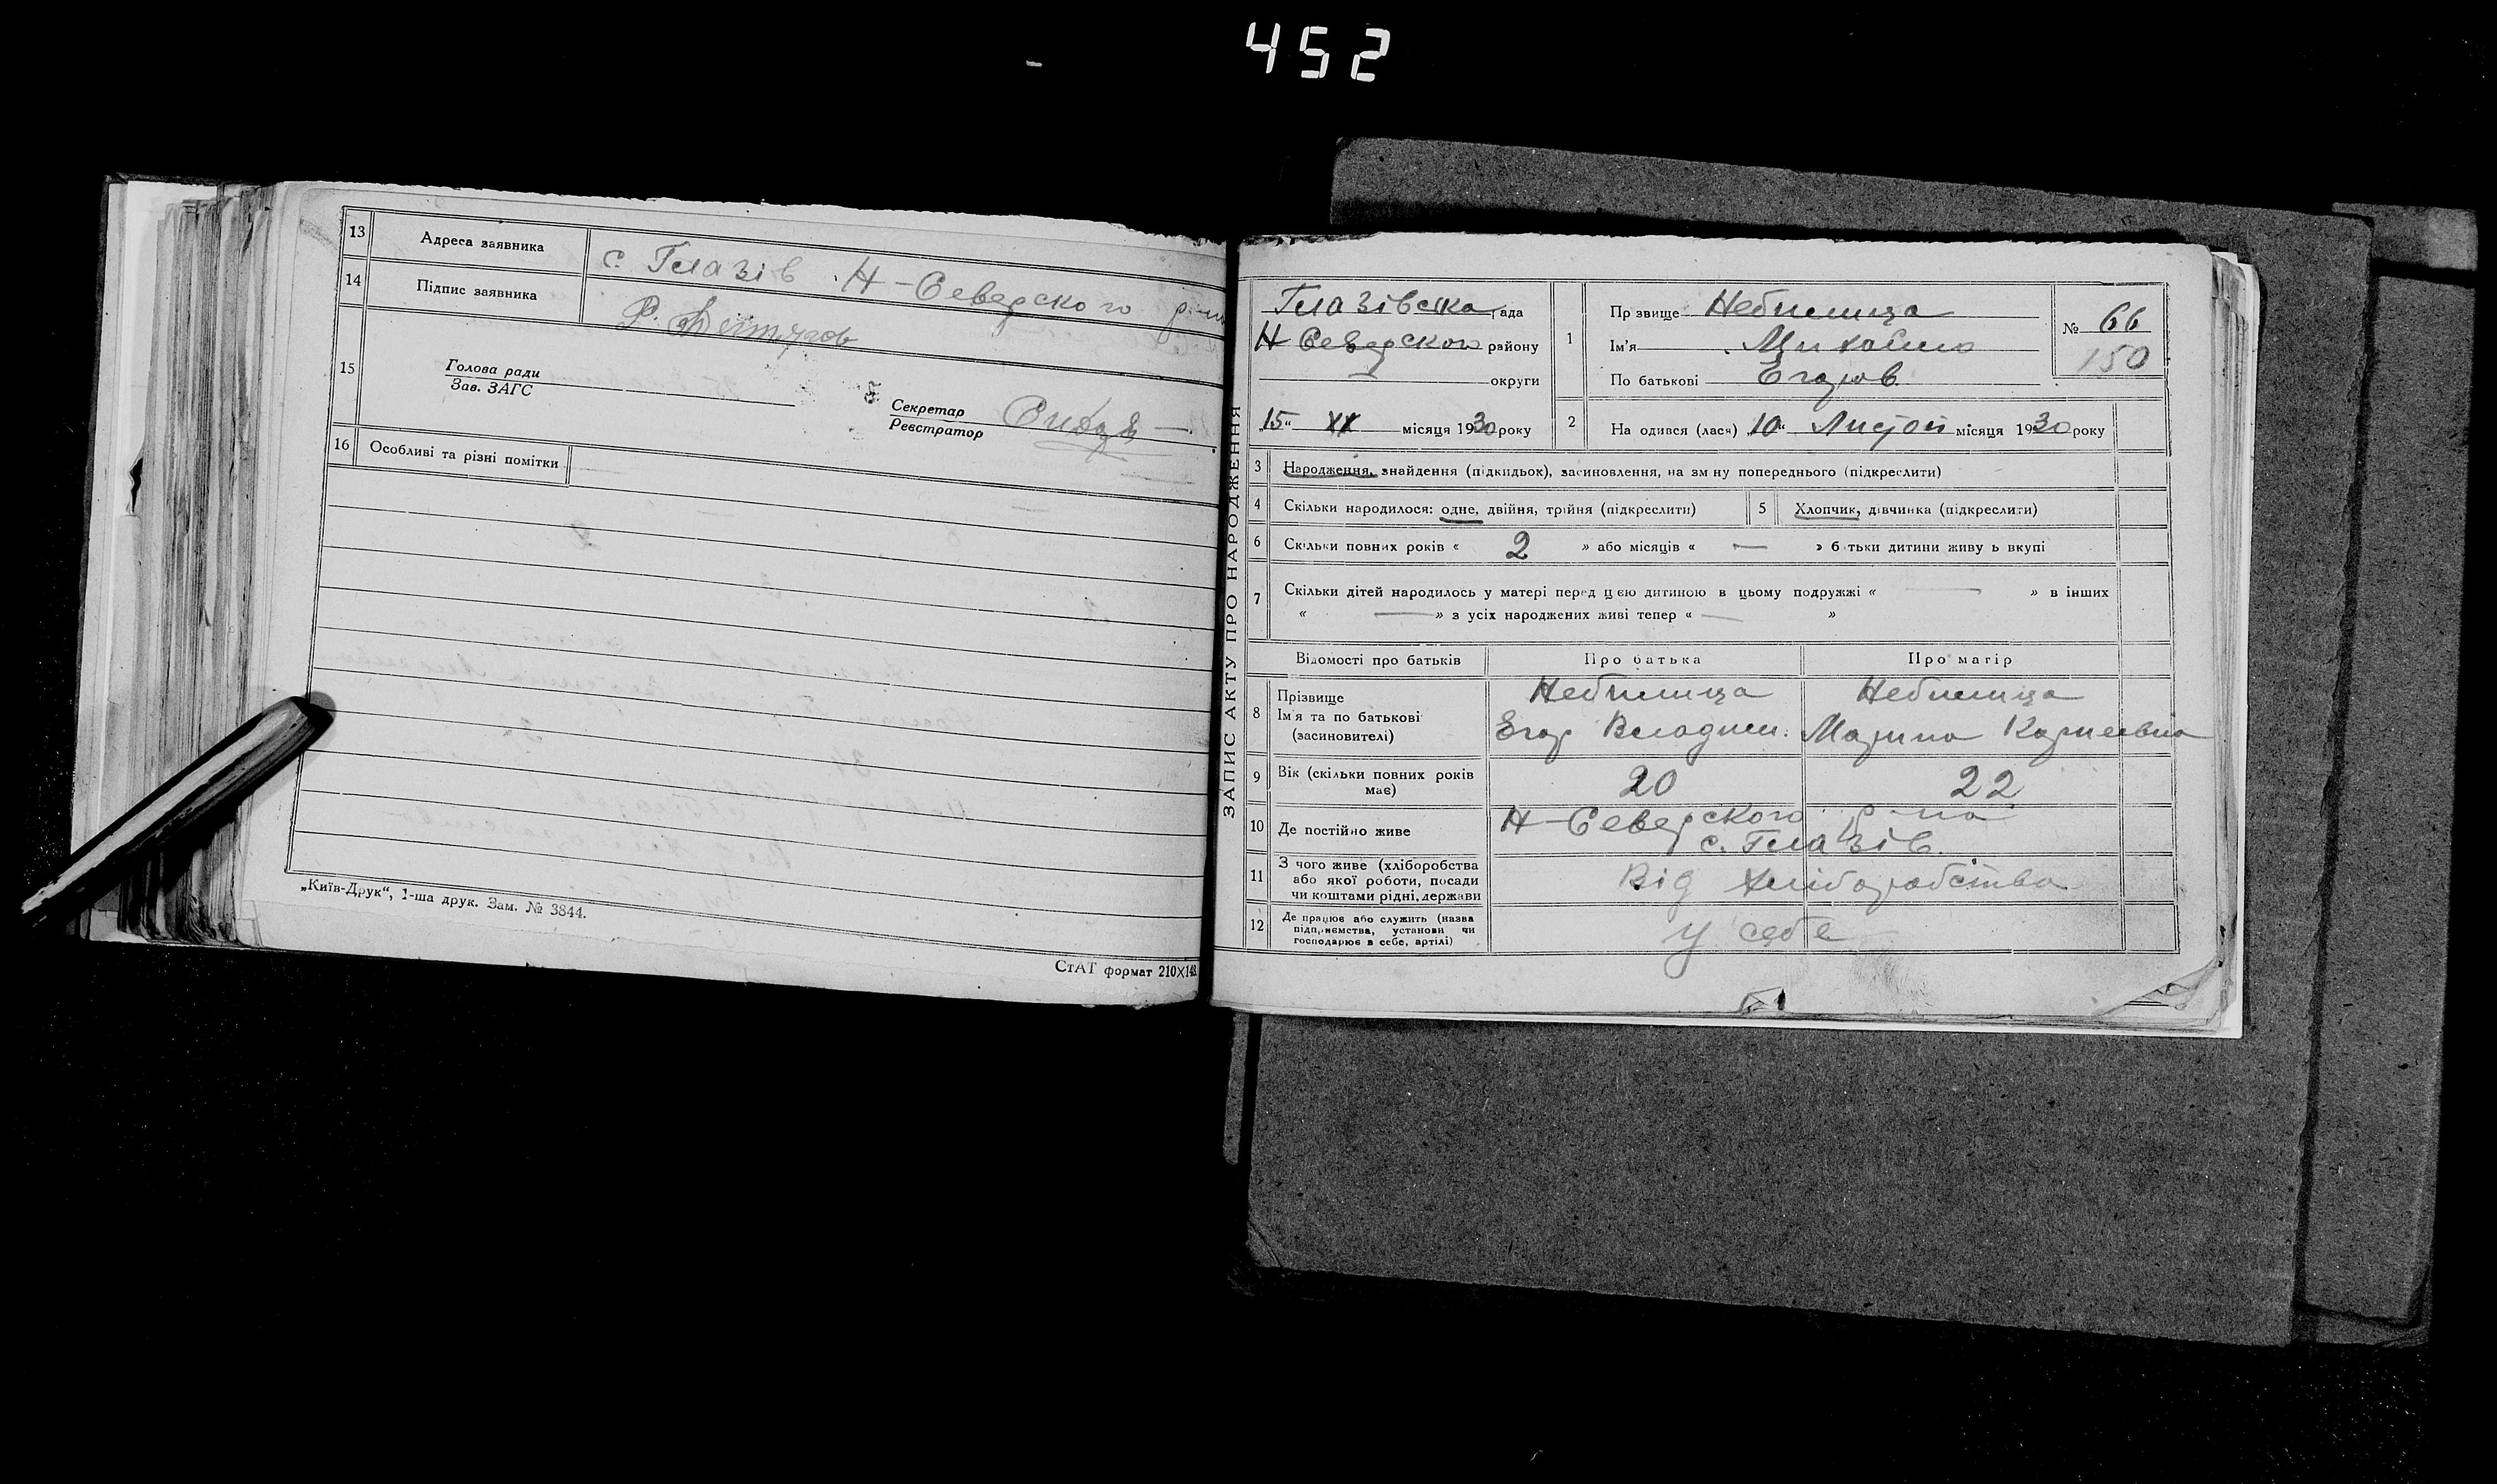 452
13 Адреса заявника с. Глазів Н-Северского р-на
14 Підпис заявника Р.
15 Голова ради
Зав. ЗАГС
Секретар
Реєстратор
16 Особливі та різні помітки
„Київ-Друк“, 1-ша друк. Зам. № 3844.
СтАТ формат 210X148.
ЗАПИС АКТУ ПРО НАРОДЖЕННЯ
Глазівська рада
Н Северского району
округи
„15“ XI місяця 1930 року
1 Прізвище Небилица
Ім'я Михайло
По батькові Егоров
№ 66
150
2 Народився (лася) „10“ Листоп місяця 1930 року
3 Народження, знайдення (підкидьок), засиновлення, на зміну попереднього (підкреслити)
4 Скільки народилося: одне, двійня, трійня (підкреслити) 5 Хлопчик, дівчинка (підкреслити)
6 Скільки повних років « 2 » або місяців « — » батьки дитини живуть вкупі
7 Скільки дітей народилось у матері перед цією дитиною в цьому подружжі « — » в інших
« — » з усіх народжених живі тепер « — »
Відомості про батьків Про батька Про матір
8 Прізвище Небилица Небилица
Ім'я та по батькові Егор Владим. Марина Карпеевна
(засиновителі)
9 Вік (скільки повних років має) 20 22
10 Де постійно живе Н-Северского р-на
с. Глазів.
11 З чого живе (хліборобства
або якої роботи, посади
чи коштами рідні, держави Від хліборобства
12 Де працює або служить (назва
підприємства, установи чи
господарює в себе, артілі) у себе